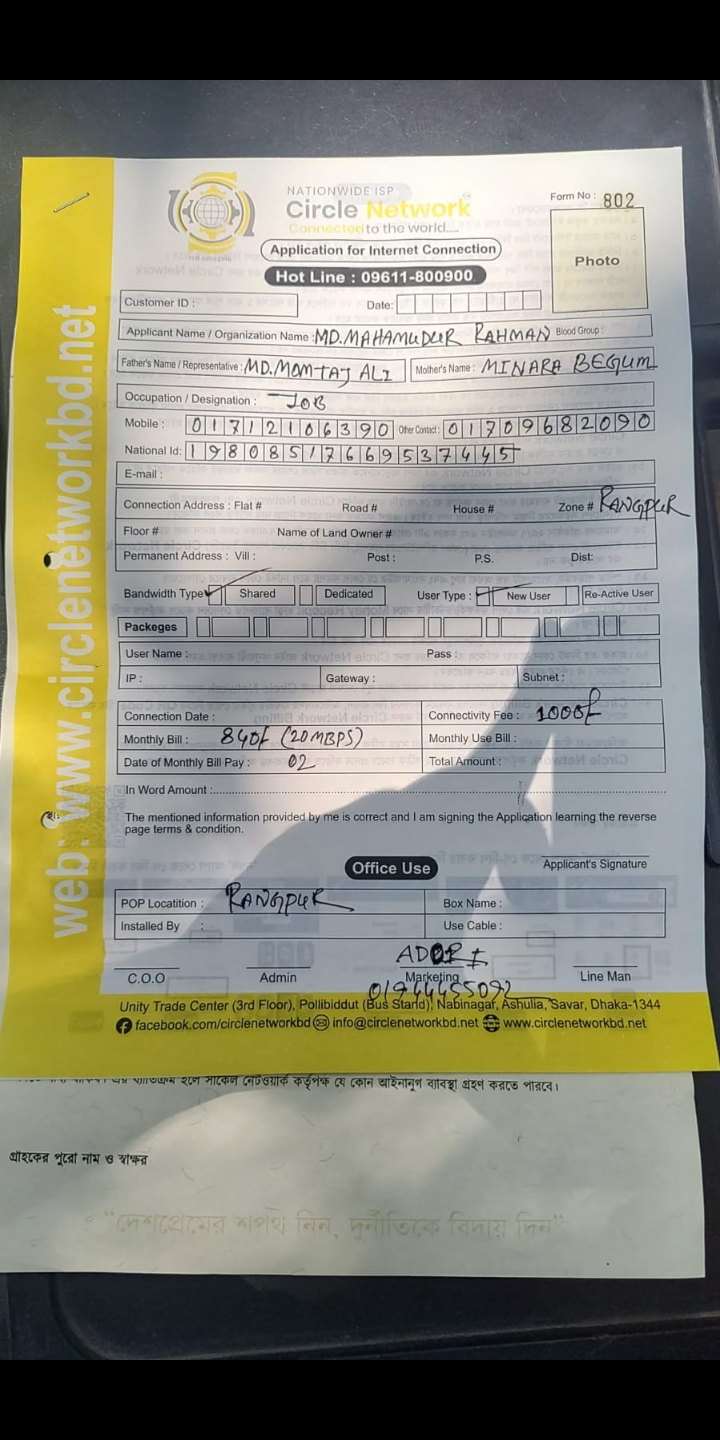 NATIONWIDE ISP
Circle Network
Connected to the world.....
Form No : 802
Application for Internet Connection
Hot Line : 09611-800900
Photo
Customer ID :
Date:
Applicant Name / Organization Name : MD. MAHAMUDUR RAHMAN Blood Group :
Father's Name / Representative : MD. MOMTAJ ALI Mother's Name : MINARA BEGUM
Occupation / Designation : JOB
Mobile : 01712106390 Other Contact : 01709682090
National Id: 19808517669537445
E-mail :
Connection Address : Flat # Road # House # Zone # RANGPUR
Floor # Name of Land Owner #
Permanent Address : Vill : Post : P.S. Dist:
Bandwidth Type Shared Dedicated User Type : New User Re-Active User
Packeges
User Name : Pass :
IP : Gateway : Subnet :
Connection Date : Connectivity Fee : 1000/
Monthly Bill : 840/ (20MBPS) Monthly Use Bill :
Date of Monthly Bill Pay : 02 Total Amount :
In Word Amount :
The mentioned information provided by me is correct and I am signing the Application learning the reverse
page terms & condition.
Applicant's Signature
Office Use
POP Locatition : RANGPUR Box Name :
Installed By : Use Cable :
C.O.O Admin Marketing Line Man
Unity Trade Center (3rd Floor), Pollibiddut (Bus Stand), Nabinagar, Ashulia, Savar, Dhaka-1344
facebook.com/circlenetworkbd info@circlenetworkbd.net www.circlenetworkbd.net
web: www.circlenetworkbd.net
হলে সার্কেল নেটওয়ার্ক কর্তৃপক্ষ যে কোন আইনানুগ ব্যবস্থা গ্রহণ করতে পারবে।
গ্রাহকের পুরো নাম ও স্বাক্ষর
“দেশপ্রেমের শপথ নিন, দুর্নীতিকে বিদায় দিন”